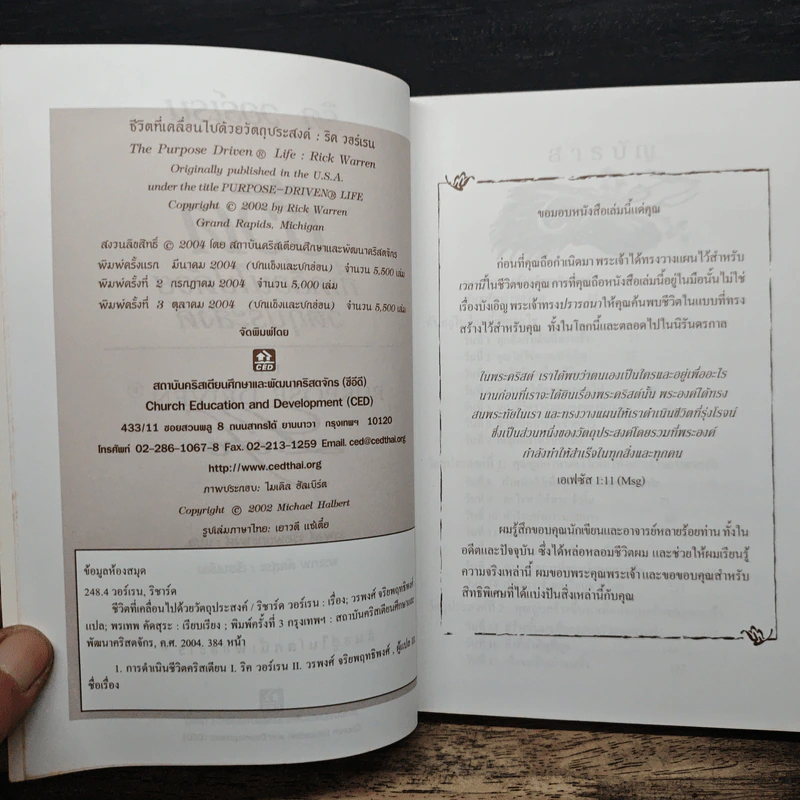 ชีวิตที่เคลื่อนไปด้วยวัตถุประสงค์ : ริค วอร์เรน
The Purpose Driven® Life : Rick Warren
Originally published in the U.S.A.
under the title PURPOSE-DRIVEN® LIFE
Copyright © 2002 by Rick Warren
Grand Rapids, Michigan
สงวนลิขสิทธิ์ © 2004 โดย สถาบันคริสเตียนศึกษาและพัฒนาคริสตจักร
พิมพ์ครั้งแรก มีนาคม 2004 (ปกแข็งและปกอ่อน) จำนวน 5,500 เล่ม
พิมพ์ครั้งที่ 2 กรกฎาคม 2004 จำนวน 5,000 เล่ม
พิมพ์ครั้งที่ 3 ตุลาคม 2004 (ปกแข็งและปกอ่อน) จำนวน 5,500 เล่ม
จัดพิมพ์โดย
CED
สถาบันคริสเตียนศึกษาและพัฒนาคริสตจักร (ซีอีดี)
Church Education and Development (CED)
433/11 ซอยสวนพลู 8 ถนนสาทรใต้ ยานนาวา กรุงเทพฯ 10120
โทรศัพท์ 02-286-1067-8 Fax.02-213-1259 Email. ced@cedthai.org
http://www.cedthai.org
ภาพประกอบ: ไมเคิล ฮัลเบิร์ต
Copyright © 2002 Michael Halbert
รูปเล่มภาษาไทย: เยาวดี แซ่เตี๋ย
ข้อมูลห้องสมุด
248.4 วอร์เรน, ริชาร์ด
ชีวิตที่เคลื่อนไปด้วยวัตถุประสงค์ / ริชาร์ด วอร์เรน : เรื่อง; วรพงศ์ จริยพฤทธิพงศ์
แปล; พรเทพ คัดสุระ : เรียบเรียง ; พิมพ์ครั้งที่ 3 กรุงเทพฯ : สถาบันคริสเตียนศึกษาและ
พัฒนาคริสตจักร, ค.ศ. 2004. 384 หน้า
1. การดำเนินชีวิตคริสเตียน I. ริค วอร์เรน II. วรพงศ์ จริยพฤทธิพงศ์, ผู้แปล
ชื่อเรื่อง
สารบัญ
ขอมอบหนังสือเล่มนี้แด่คุณ
ก่อนที่คุณถือกำเนิดมา พระเจ้าได้ทรงวางแผนไว้สำหรับ
เวลานี้ในชีวิตของคุณ การที่คุณถือหนังสือเล่มนี้อยู่ในมือนั้นไม่ใช่
เรื่องบังเอิญ พระเจ้าทรงปรารถนาให้คุณค้นพบชีวิตในแบบที่ทรง
สร้างไว้สำหรับคุณ ทั้งในโลกนี้และตลอดไปในนิรันดรกาล
ในพระคริสต์ เราได้พบว่าตนเองเป็นใครและอยู่เพื่ออะไร
นานก่อนที่เราจะได้ยินเรื่องพระคริสต์นั้น พระองค์ได้ทรง
สนพระทัยในเรา และทรงวางแผนให้เราดำเนินชีวิตที่รุ่งโรจน์
ซึ่งเป็นส่วนหนึ่งของวัตถุประสงค์โดยรวมที่พระองค์
กำลังทำให้สำเร็จในทุกสิ่งและทุกคน
เอเฟซัส 1:11 (Msg)
ผมรู้สึกขอบคุณนักเขียนและอาจารย์หลายร้อยท่าน ทั้งใน
อดีตและปัจจุบัน ซึ่งได้หล่อหลอมชีวิตผม และช่วยให้ผมเรียนรู้
ความจริงเหล่านี้ ผมขอบพระคุณพระเจ้า และขอขอบคุณสำหรับ
สิทธิพิเศษที่ได้แบ่งปันสิ่งเหล่านี้กับคุณ